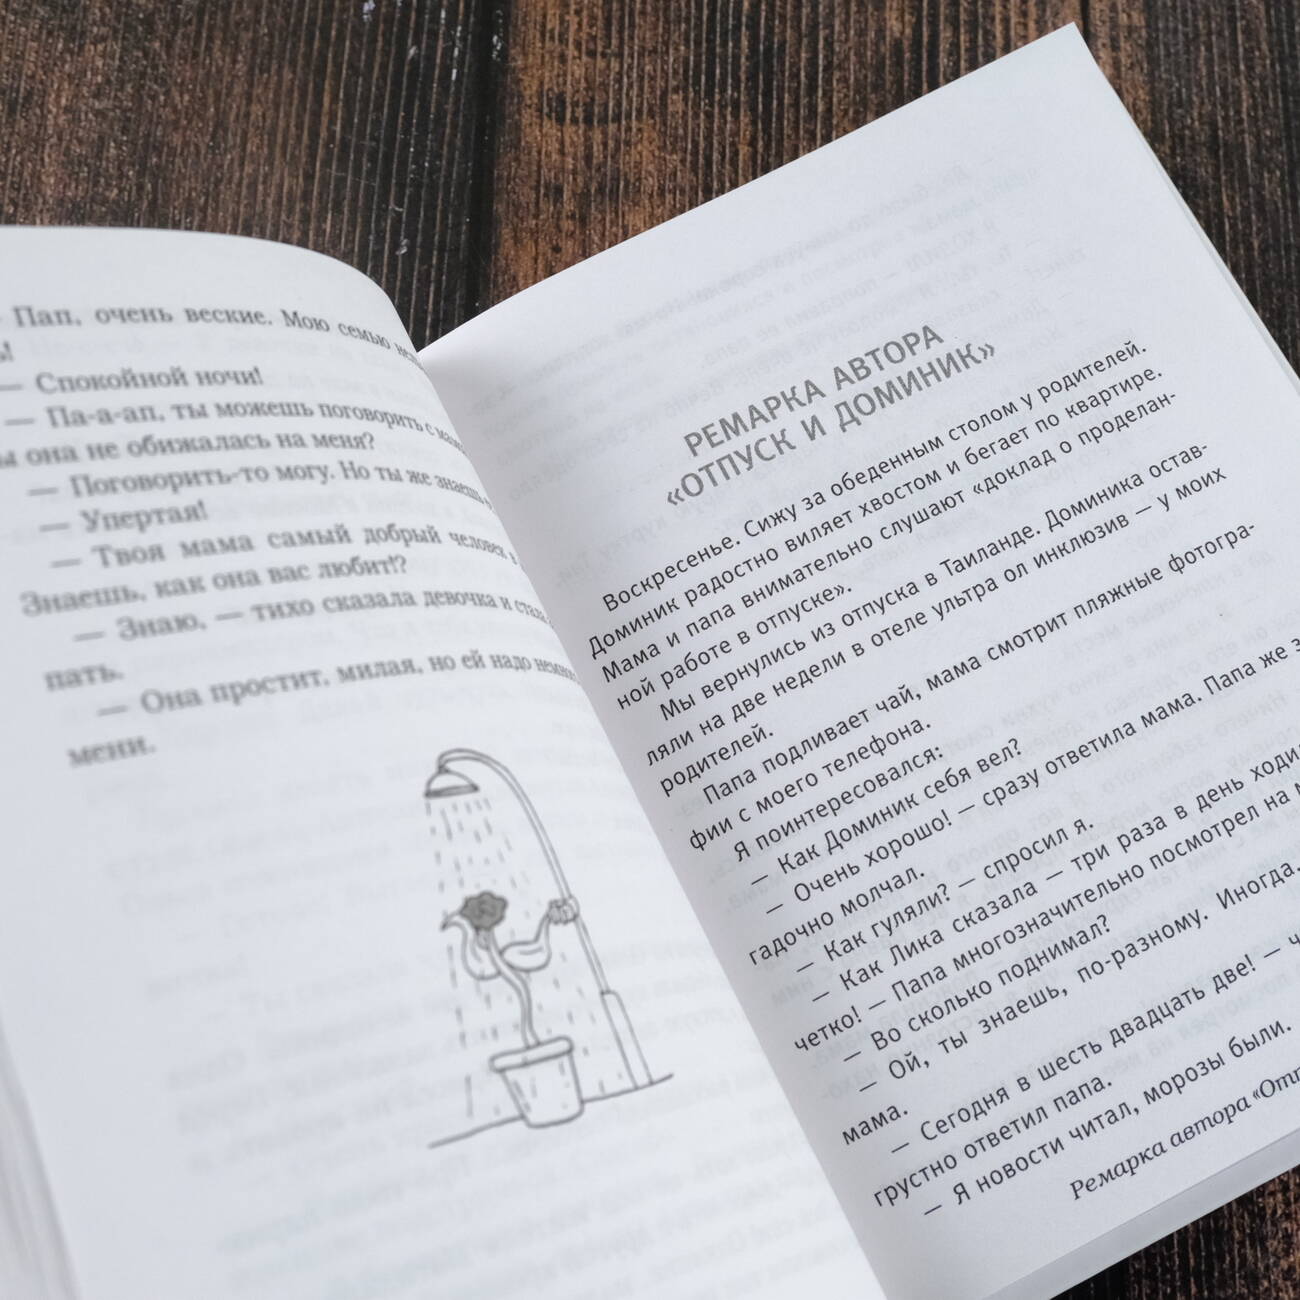 — Пап, очень веские. Мою семью
— Спокойной ночи!
— Па-а-ап, ты можешь поговорить с
она не обижалась на меня?
— Поговорить-то могу. Но ты же знаешь
— Упертая!
— Твоя мама самый добрый человек
Знаешь, как она вас любит!?
— Знаю, — тихо сказала девочка и
пать.
— Она простит, милая, но ей надо
мени.
РЕМАРКА АВТОРА
«ОТПУСК И ДОМИНИК»
Воскресенье. Сижу за обеденным столом у родителей.
Доминик радостно виляет хвостом и бегает по квартире.
Мама и папа внимательно слушают «доклад о проделан-
ной работе в отпуске».
Мы вернулись из отпуска в Таиланде. Доминика остав-
ляли на две недели в отеле ультра ол инклюзив — у моих
родителей.
Папа подливает чай, мама смотрит пляжные фотогра-
фии с моего телефона.
Я поинтересовался:
— Как Доминик себя вел?
— Очень хорошо! — сразу ответила мама. Папа же
гадочно молчал.
— Как гуляли? — спросил я.
— Как Лика сказала — три раза в день
четко! — Папа многозначительно посмотрел на
— Во сколько поднимал?
— Ой, ты знаешь, по-разному. Иногда,
мама.
— Сегодня в шесть двадцать две! —
грустно ответил папа.
— Я новости читал, морозы были.
Ремарка автора